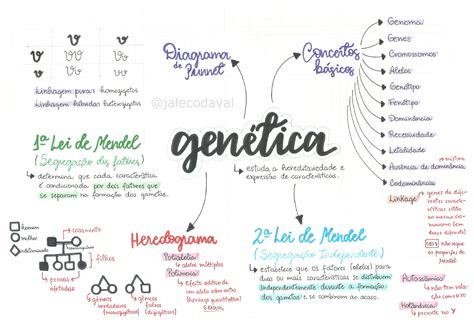 v v
v vv vv
v vv vv
Linhagem pura: homozigotos
Linhagem híbrida: heterozigotos
Diagrama
de Punnet
Conceitos
básicos
Genoma
Genes
Cromossomos
Alelos
Genótipo
Fenótipo
Dominância
Recessividade
Letalidade
Ausência de dominância
Codominância
mistura
@jalecodaval
genética
estuda a hereditariedade e
expressão de características.
1ª Lei de Mendel
(Segregação dos fatores)
determina que cada característica
é condicionada por dois fatores que
se separam na formação dos gametas.
Linkage
genes de dife-
rentes caracterís-
ticas estão no
mesmo cro-
mossomo
não segue
a 2ª lei de Mendel
Autossômica
Holândrica
presente no Y
2ª Lei de Mendel
(Segregação Independente)
estabelece que os fatores (alelos) para
duas ou mais características se distribuem
independentemente durante a formação
dos gametas e se combinam ao acaso.
Heredograma
Polialelia
alelos múltiplos
Polimeria
Efeito aditivo de
um alelo sobre o outro
(herança quantitativa)
homem
mulher
casamento
filhos
pessoas
afetadas
gêmeos
gêmeos